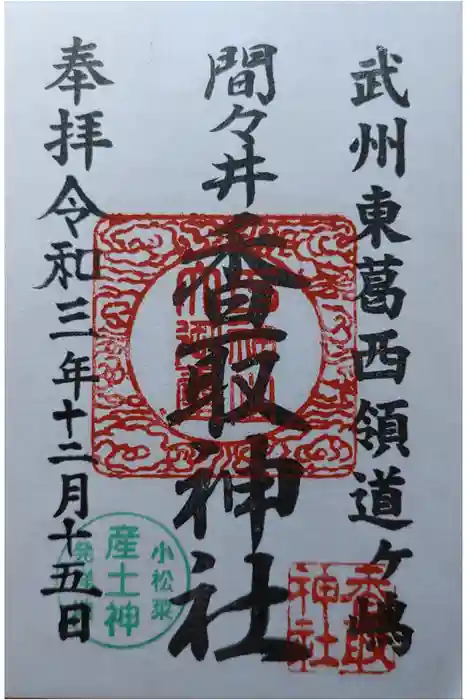 武州東葛西領道ヶ嶋
間々井
香取神社
奉拝令和三年十二月十五日
香取
神社
小松菜
産土神